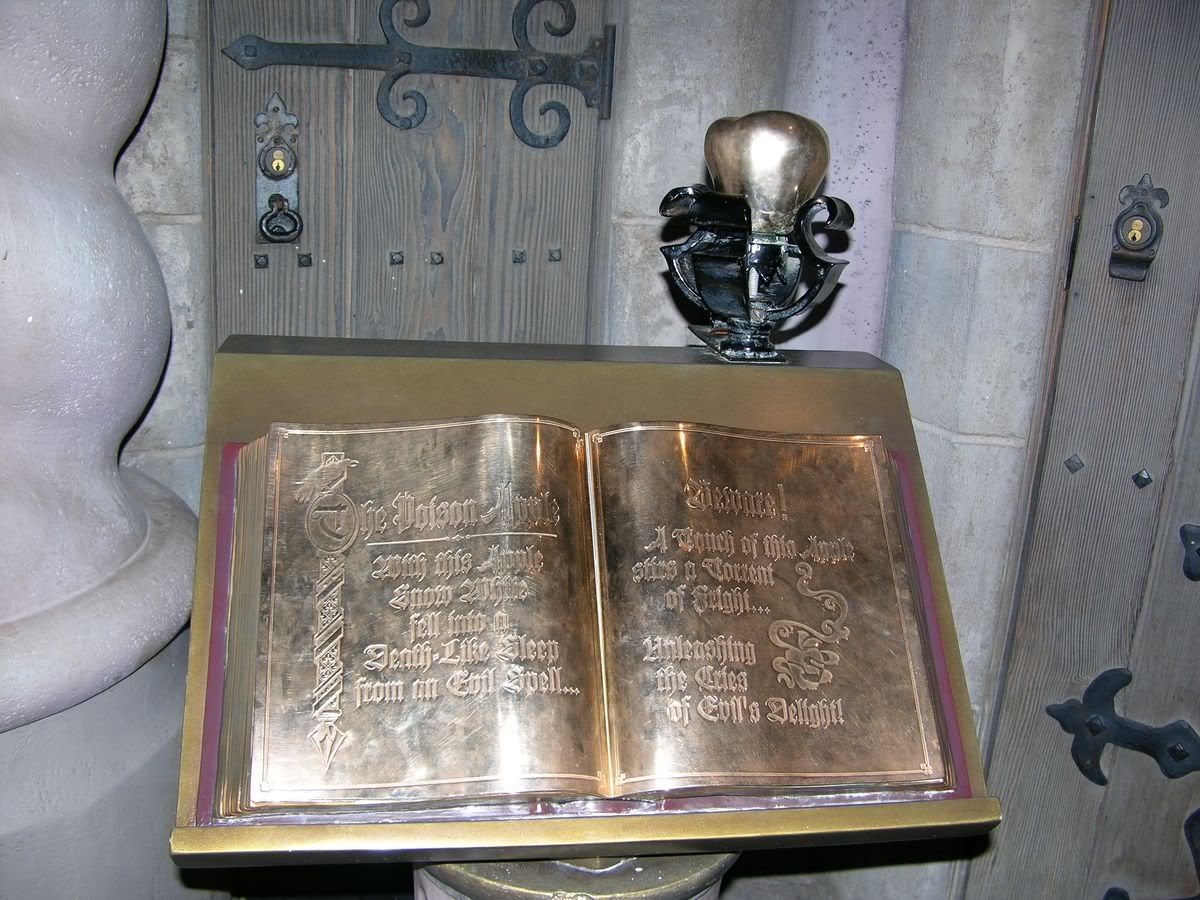 The Poison Apple
With this Apple
Snow White
fell into a
Death-Like Sleep
from an Evil Spell...
Beware!
A Touch of this Apple
stirs a Torrent
of Fright...
Unleashing
the Cries
of Evil's Delight!